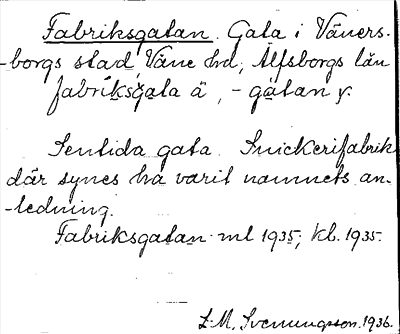 Fabriksgatan. Gata i Väners-
-borgs stad, Väne hd, Älfsborgs län
fabriksgata ä, -gatan y.
Sentida gata. Snickerifabrik
där synes ha varit namnets an-
-ledning.
Fabriksgatan ml 1935; kl. 1935.
S. M. Svenungsson. 1936.